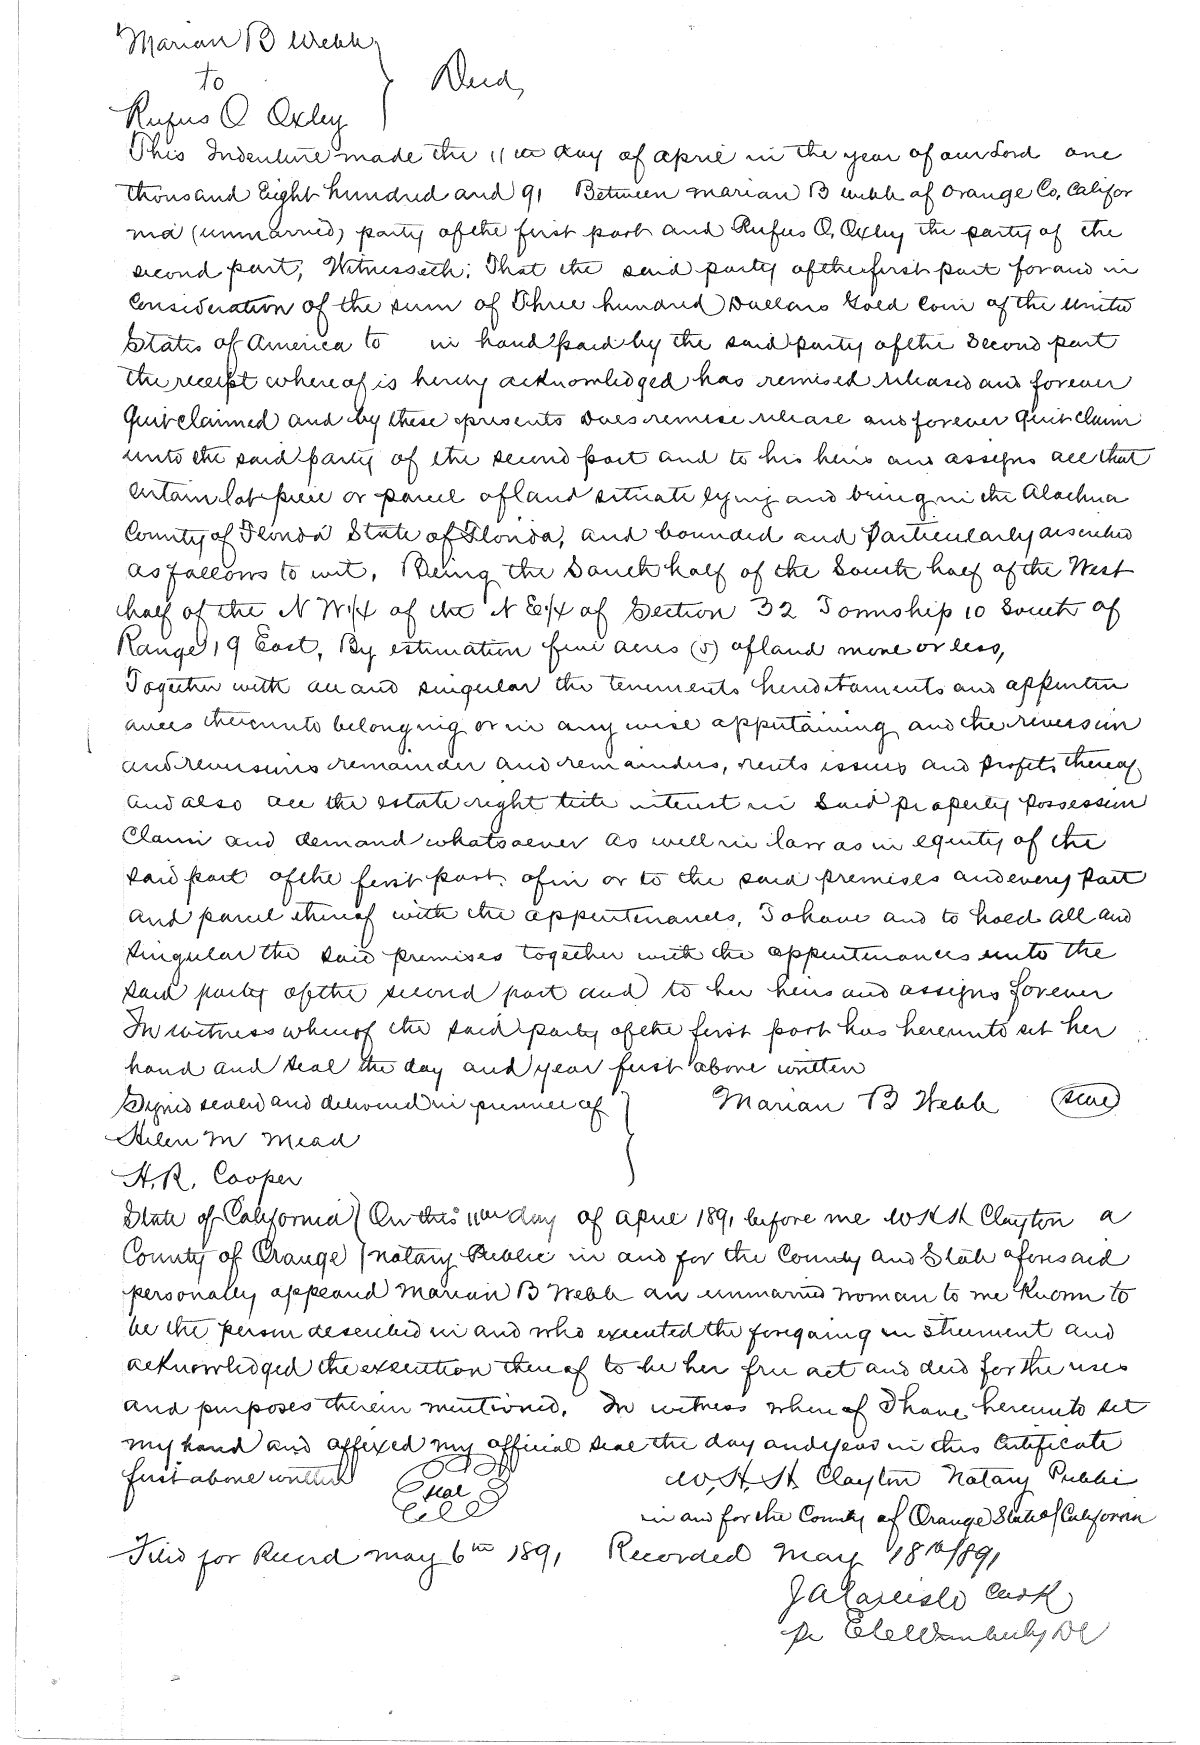 Marian B Webb
to
Deed,
Rufus O Oxley
This Indenture made the 11th day of April in the year of our Lord one
thousand Eight hundred and 91 Between Marian B Webb of Orange Co, Califor
nia (unmarried) party of the first part and Rufus O, Oxley the party of the
second part, Witnesseth; That the said party of the first part for and in
Consideration of the sum of Three hundred Dollars Gold Coin of the United
States of America to in hand paid by the said party of the Second part
the receipt whereof is hereby acknowledged has remised released and forever
Quitclaimed and by these presents does remise release and forever Quit claim
unto the said party of the second part and to his heirs and assigns all that
certain lot piece or parcel of land situate lying and being in the Alachua
County of Florida State of Florida, and bounded and Particularly described
as follows to wit, Being the South half of the South half of the West
half of the N W 1/4 of the N E 1/4 of Section 32 Township 10 South of
Range 19 East, By estimation five acres (5) of land more or less,
Together with all and singular the tenements hereditaments and appurten
ances thereunto belonging or in any wise appertaining and the reversion
and reversions remainder and remainders, rents issues and profits thereof
and also all the estate right title interest in said property possession
Claim and demand whatsoever as well in law as in equity of the
said part of the first part, of in or to the said premises and every part
and parcel thereof with the appurtenances, To have and to hold all and
singular the said premises together with the appurtenances unto the
said party of the second part and to her heirs and assigns forever
In witness whereof the said party of the first part has hereunto set her
hand and seal the day and year first above written
Signed sealed and delivered in presence of Marian B Webb (seal)
Helen M Mead
H. R. Cooper
State of California ) On this 11th day of April 1891 before me W H H Clayton a
County of Orange ) Notary Public in and for the County and State aforesaid
personally appeared Marian B Webb an unmarried woman to me Known to
be the person described in and who executed the foregoing instrument and
acknowledged the execution thereof to be her free act and deed for the uses
and purposes therein mentioned. In witness whereof I have hereunto set
my hand and affixed my official seal the day and year in this Certificate
first above written seal W, H, H, Clayton Notary Public
in and for the County of Orange State of California
Filed for Record May 6th 1891 Recorded May 18th/891
J A Carlisle Clerk
DC